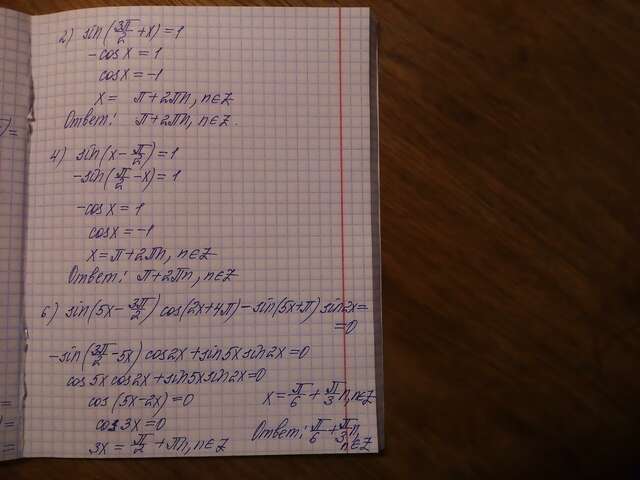 2) sin(3π/2 + x) = 1
-cos x = 1
cos x = -1
x = π + 2πn, n∈Z
Ответ: π + 2πn, n∈Z.
4) sin(x - π/2) = 1
-sin(π/2 - x) = 1
-cos x = 1
cos x = -1
x = π + 2πn, n∈Z
Ответ: π + 2πn, n∈Z
6) sin(5x - 3π/2) cos(2x + 4π) - sin(5x + π) sin 2x =
= 0
-sin(3π/2 - 5x) cos 2x + sin 5x sin 2x = 0
cos 5x cos 2x + sin 5x sin 2x = 0
cos(5x - 2x) = 0
cos 3x = 0
3x = π/2 + πn, n∈Z
x = π/6 + π/3 n, n∈Z
Ответ: π/6 + π/3 n,
n∈Z